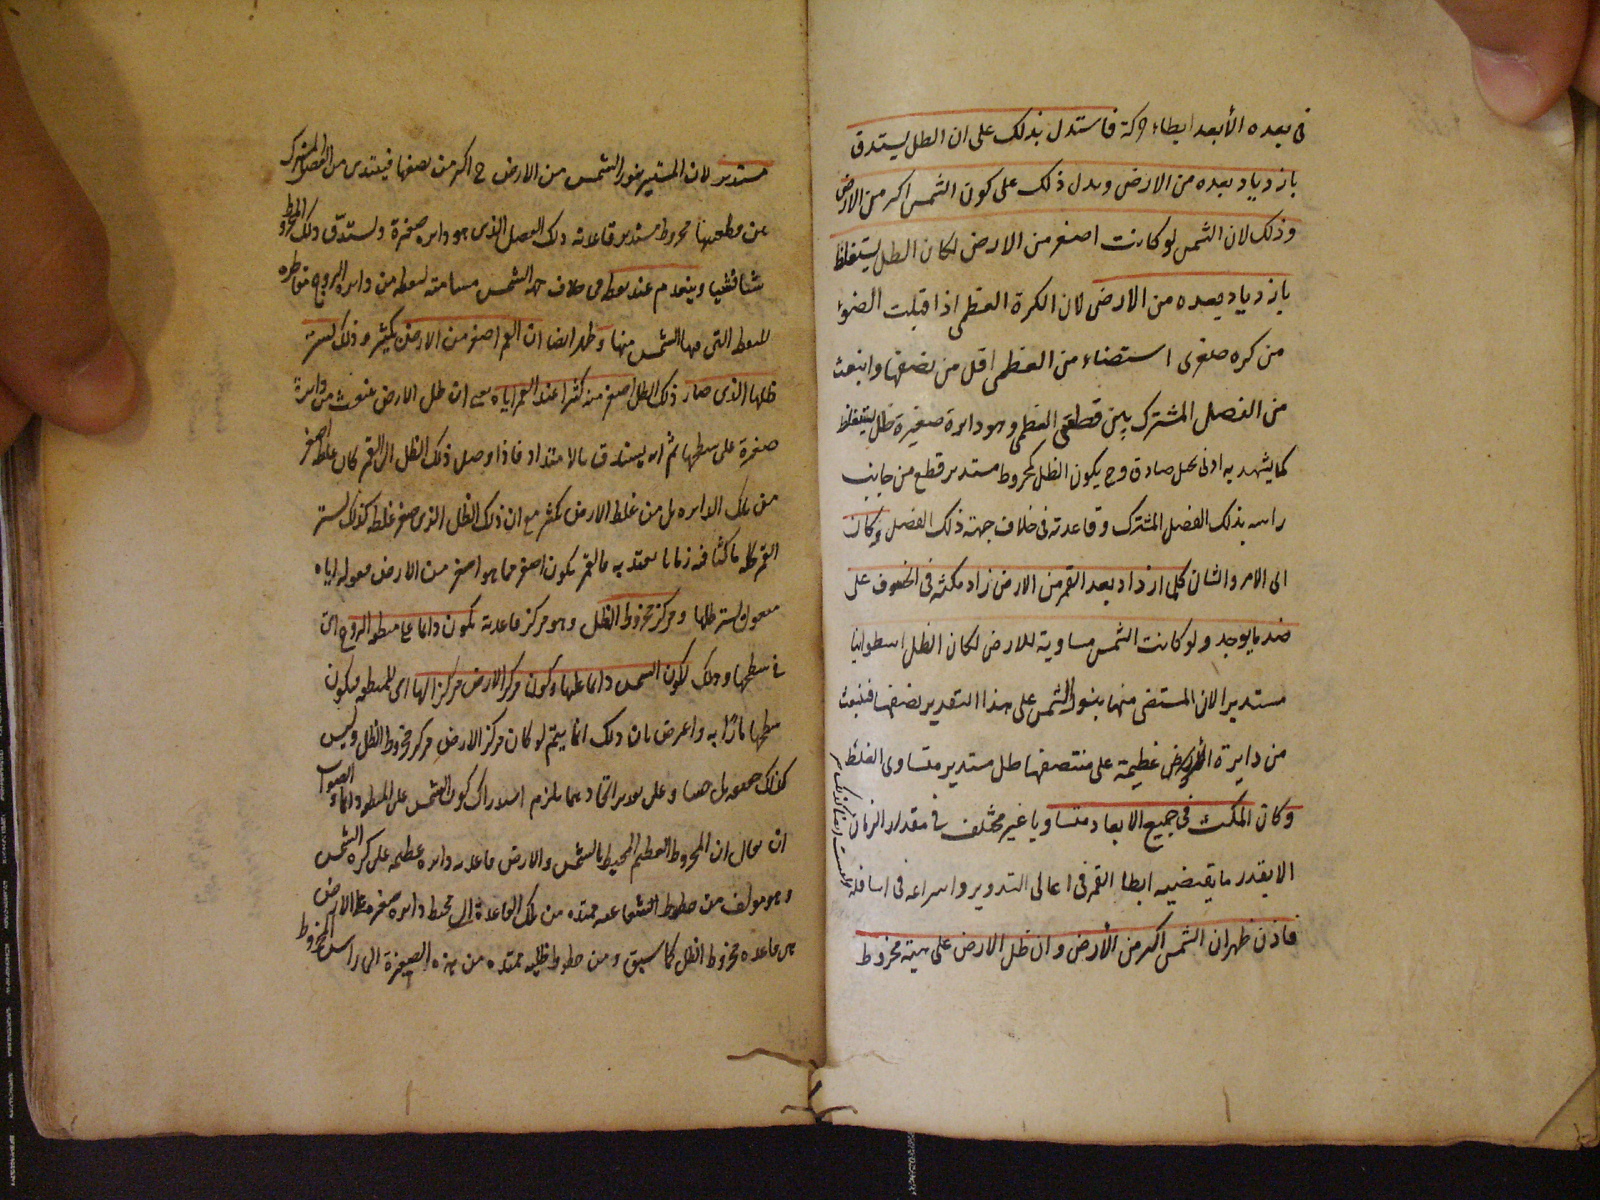 فى بعده الأبعد ابطاء حركة فاستدل بذلك على ان الظل يستدق
بازدياد بعده من الارض ويدل ذلك على كون الشمس اكبر من الارض
وذلك لان الشمس لو كانت اصغر من الارض لكان الظل يستغلظ
بازدياد بعده من الارض لان الكرة العظمى اذا قبلت الضوء
من كره صغرى استضاء من العظمى اقل من نصفها وانبعث
من الفصل المشترك بين قطعتى العظمى وهو دايرة صغيرة ظل يستغلظ
كما يشهد به ادنى تخيل صادق وح يكون الظل كمخروط مستدير قطع من جانب
راسه بذلك الفصل المشترك وقاعدته فى خلاف جهة ذلك الفصل وكان
الى الامر والشان كلما ازداد بعد القمر من الارض زاد مكثه فى الخسوف على
ضد ما يوجد ولو كانت الشمس مساوية للارض لكان الظل اسطوانيا
مستديرا لان المستضى منها بنور الشمس على هذا التقدير نصفها فينبعث
من دايرة عظيمة على منتصفها ظل مستدير متساوى الغلظ
وكان المكث فى جميع الابعاد متساويا غير مختلف فى مقدار الزمان
الا بقدر ما يقتضيه ابطا القمر فى اعالى التدوير واسراعه فى اسافله
فاذن ظهر ان الشمس اكبر من الأرض وان ظل الارض على هيئة مخروط
مستدير لان المستنير بنور الشمس من الارض ح اكبر من نصفها فيبتدى من الفصل المشترك
بين قطعتيها مخروط مستدير قاعدته ذلك الفصل الذى هو دايره صغيرة ويستدق ذلك المخروط
شيا فشيا وينعدم عند نقطة فى خلاف جهة الشمس مسامتة لنقطة من دايرة البروج مقاطره
للنقطة التى فيها الشمس منها وظهر ايضا ان القمر اصغر من الارض بكثير وذلك لستر
ظلها الذى صار ذلك الظل اصغر منه كثيرا عند القمر اياه يعنى ان ظل الارض ينبعث من دايرة
صغيرة على سطحها ثم انه يستدق بالامتداد فاذا وصل ذلك الظل الى القمر كان غلظه اصغر
من تلك الدايره بل من غلظ الارض بكثير مع ان ذلك الظل الذى صغر غلظه كذلك يستر
القمر كله ماكثا فيه زمانا يعتد به فالقمر يكون اصغر مما هو اصغر من الارض فقوله اياه
مفعول لستر ظلها ومركز مخروط الظل وهو مركز قاعدته يكون دايما على منطقة البروج اى
فى سطحها وذلك لكون الشمس دايما عليها وكون مركز الارض مركزا لها اى للمنطقة فيكون
سطحها مارّا به واعترض بان ذلك انما يتم لو كان مركز الارض مركز مخروط الظل وليس
كذلك على تقدير اتحادهما يلزم استدراك كون الشمس على المنطقة دايما والصواب
ان يقال ان المخروط العظيم المحيط بالشمس والارض قاعدته دايره عظيمه على كره الشمس
وهو مولف من خطوط شعاعيه ممتده من تلك القاعدة الى محيط دايره صغيره على الارض
هى قاعده مخروط الظل كما سبق ومن خطوط ظليه ممتده من هذه الصغيرة الى راس المخروط